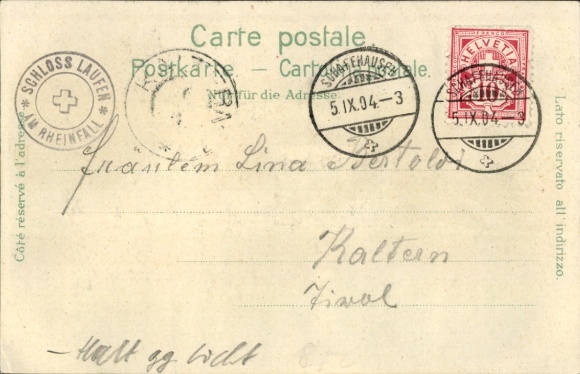 Carte postale.
Postkarte — Cartolina postale.
Nur für die Adresse.
SCHLOSS LAUFEN
AM RHEINFALL
SCHAFFHAUSEN
5.IX.04.-3
FRANCO
HELVETIA
10
SCHAFFHAUSEN
5.IX.04.-3
Côté réservé à l'adresse.
Lato riservato all' indirizzo.
Fräulein Lina Bertoldi
Kaltern
Tirol
Halt gg Licht